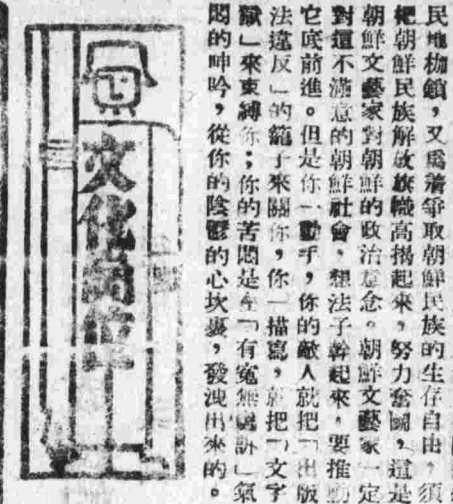 民地枷鎖，又爲着爭取朝鮮民族的生存自由，須
把朝鮮民族解放旗幟高揭起來，努力奮鬪，這是
朝鮮文藝家對朝鮮的政治意念。朝鮮文藝家一定
對這不滿意的朝鮮社會，想法子幹起來，要推動
它底前進。但是你一動手，你的敵人就把「出版
法違反」的籠子來關你，你一描寫，就把「文字
獄」來束縛你；你的苦悶是在「有寃無處訴」氣
悶的呻吟，從你的陰鬱的心坎裏，發洩出來的。
文化崗位